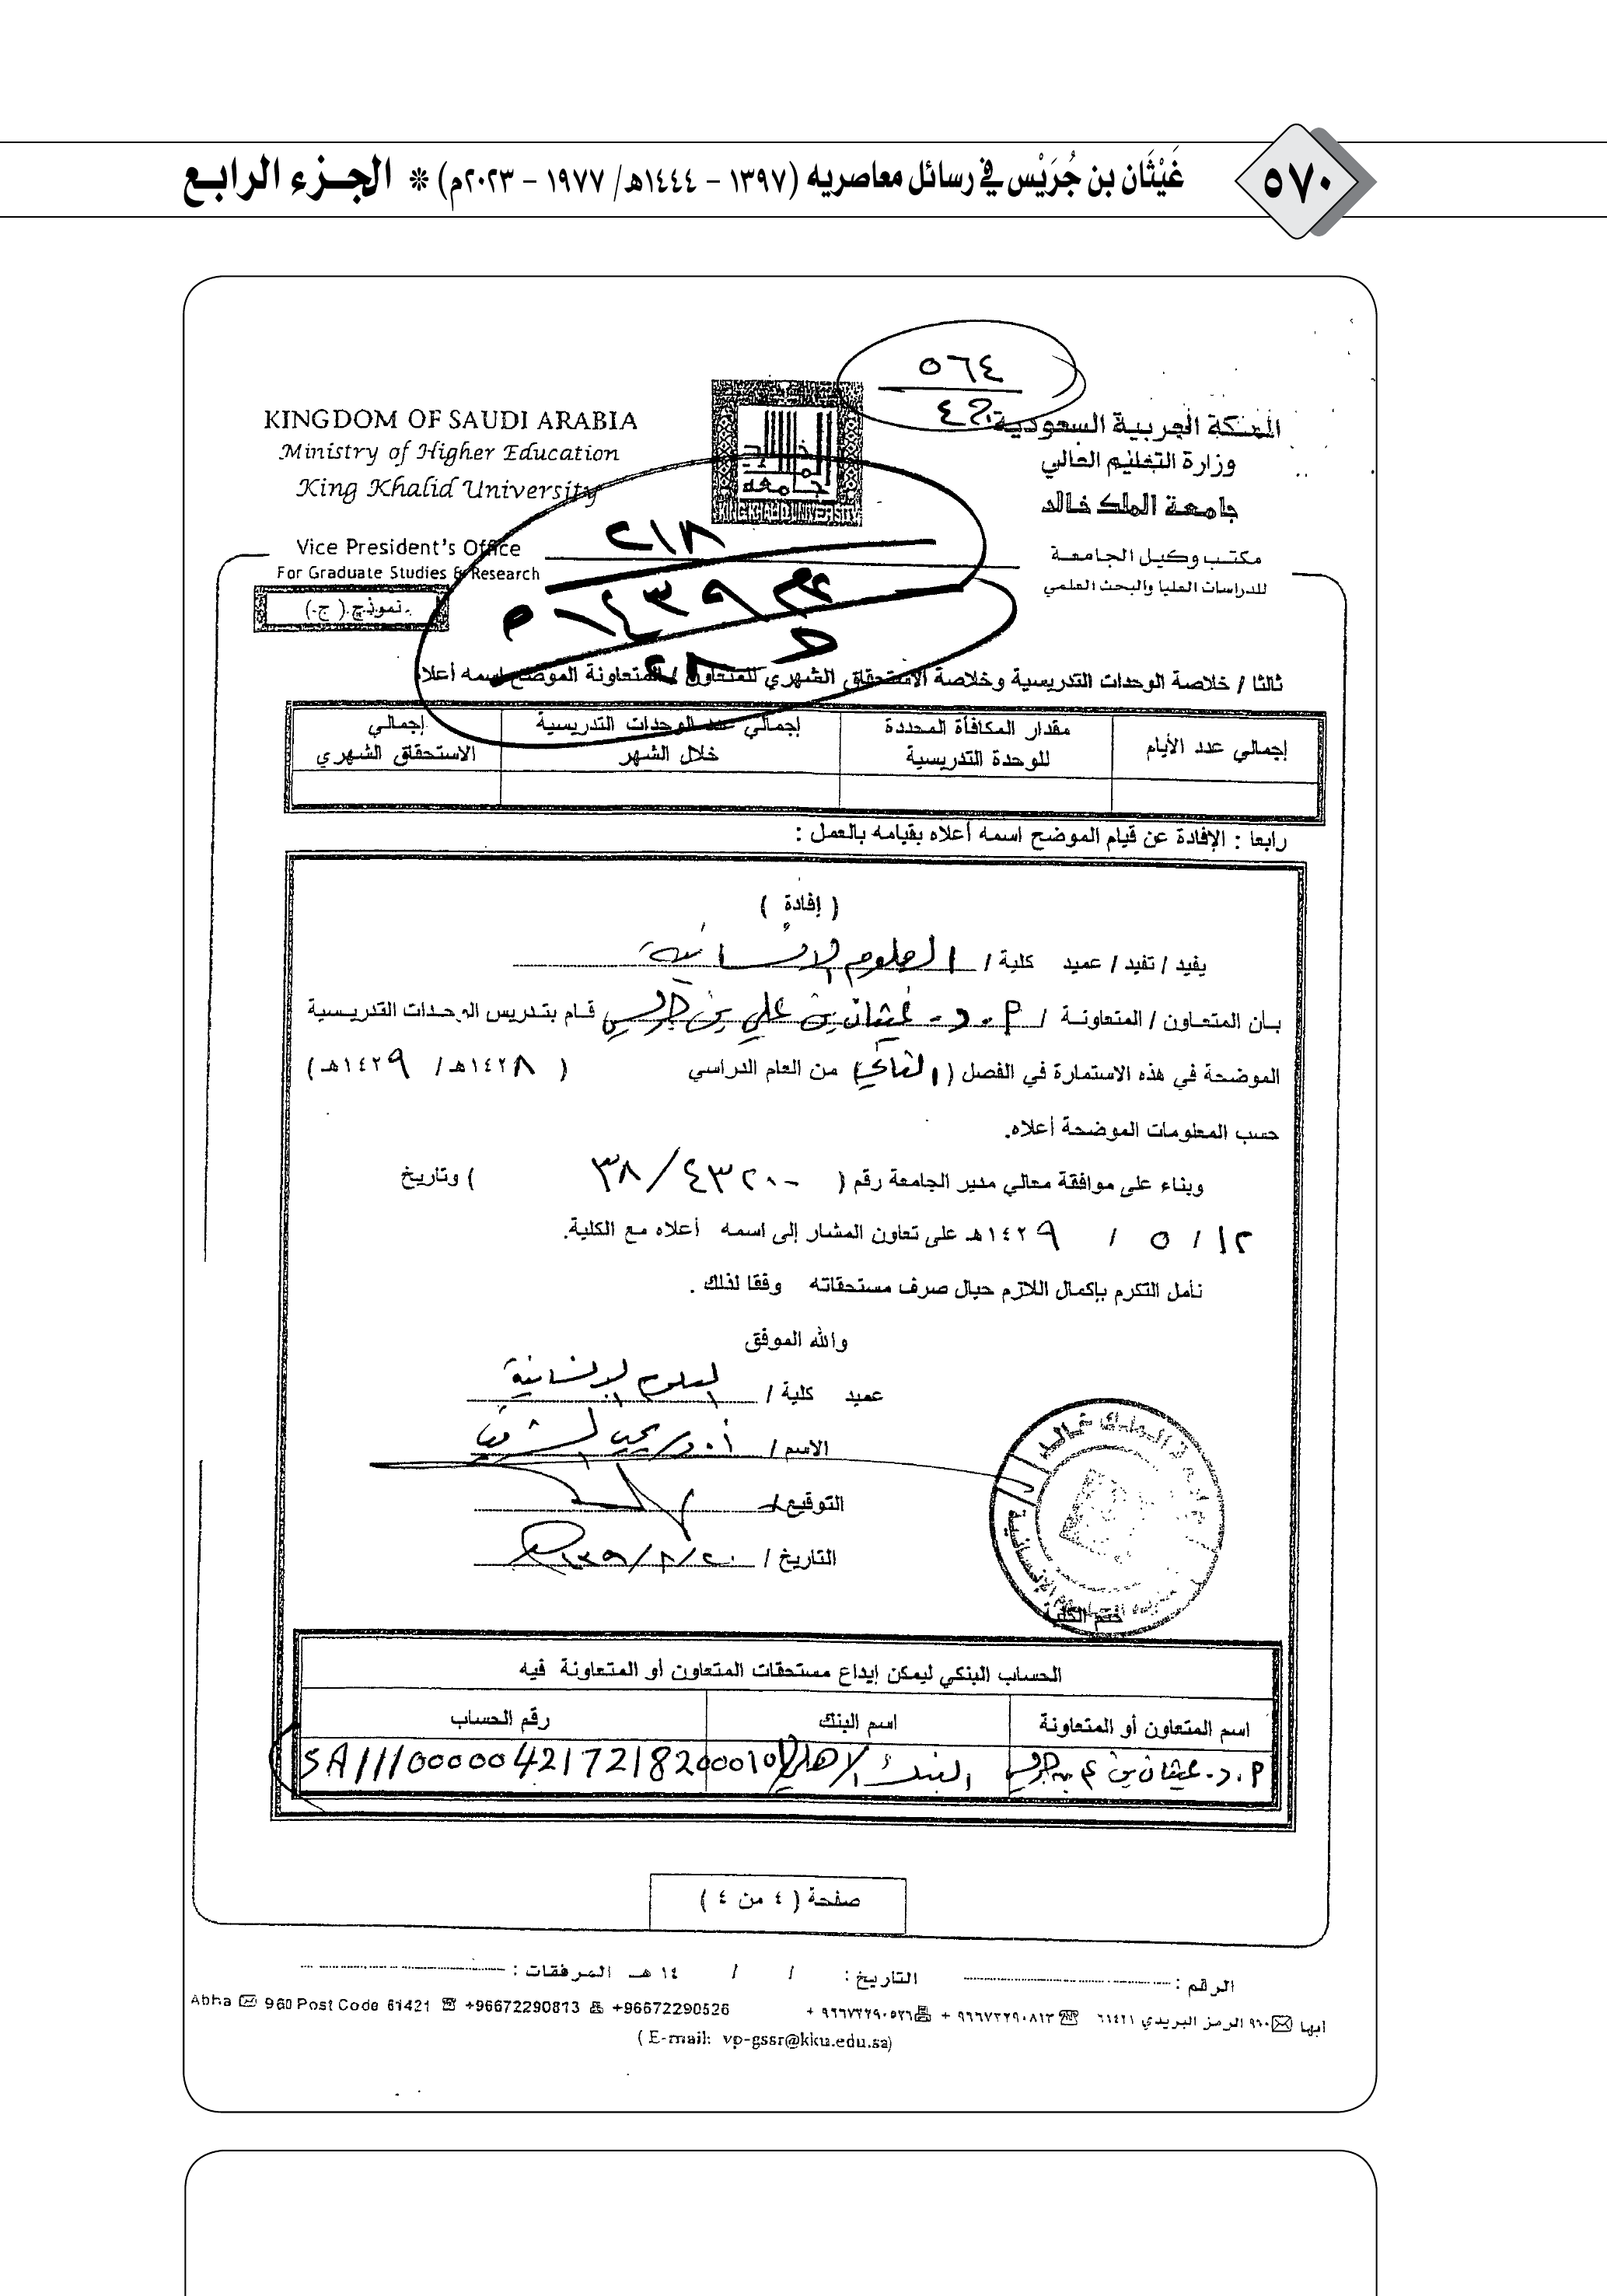 ٥٧٠
غَيْثَان بن جُرَيْس في رسائل معاصريه (١٣٩٧ - ١٤٤٤هـ/ ١٩٧٧ - ٢٠٢٣م) * الجزء الرابع
٥٦٤
KINGDOM OF SAUDI ARABIA
Ministry of Higher Education
King Khalid University
Vice President's Office
For Graduate Studies & Research
نموذج (ج)
KING KHALID UNIVERSITY
المملكة العربية السعودية
وزارة التعليم العالي
جامعة الملك خالد
مكتب وكيل الجامعة
للدراسات العليا والبحث العلمي
٢١٨
ثالثا / خلاصة الوحدات التدريسية وخلاصة الاستحقاق الشهري للمتعاون / المتعاونة الموضح اسمه أعلاه
إجمالي عدد الأيام
مقدار المكافأة المحددة للوحدة التدريسية
إجمالي عدد الوحدات التدريسية خلال الشهر
إجمالي الاستحقاق الشهري
رابعا : الإفادة عن قيام الموضح اسمه أعلاه بقيامه بالعمل :
( إفادة )
يفيد / تفيد / عميد كلية / العلوم الإنسانية
بان المتعاون / المتعاونة / أ.د. غيثان بن علي بن جريس قام بتدريس الوحدات التدريسية
الموضحة في هذه الاستمارة في الفصل (الثاني) من العام الدراسي ( ١٤٢٨هـ/ ١٤٢٩هـ)
حسب المعلومات الموضحة أعلاه.
وبناء على موافقة معالي مدير الجامعة رقم ( ٣٨/٤٣٢٠٠ ) وتاريخ
١٢ / ٥ / ١٤٢٩هـ على تعاون المشار إلى اسمه أعلاه مع الكلية.
نأمل التكرم بإكمال اللازم حيال صرف مستحقاته وفقا لذلك .
والله الموفق
عميد كلية / العلوم الإنسانية
الاسم / أ.د. يحيى الشريف
التوقيع /
التاريخ /
ختم الكلية
الحساب البنكي ليمكن إيداع مستحقات المتعاون أو المتعاونة فيه
اسم المتعاون أو المتعاونة
اسم البنك
رقم الحساب
أ.د. غيثان بن علي بن جريس
البنك الأهلي
SA111000004217218200010
صفحة ( ٤ من ٤ )
الرقم : التاريخ : / / ١٤ هـ المرفقات :
أبها ٩٦٠ الرمز البريدي ٦١٤٢١ ٩٦٦٧٢٢٩٠٨١٣ + ٩٦٦٧٢٢٩٠٥٢٦ +
Abha 960 Post Code 61421 +96672290813 +96672290526
( E-mail: vp-gssr@kku.edu.sa)